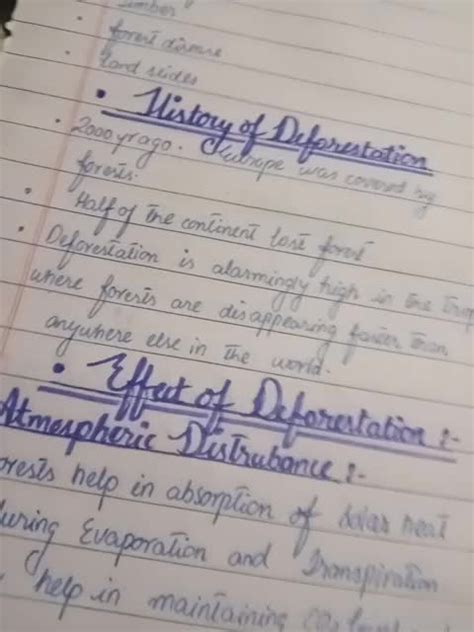 timber
• forest disease
• land slides
• History of Deforestation
• 2000 yr ago. Europe was covered by
forests.
• Half of the continent lost forest
• Deforestation is alarmingly high in the
where forests are disappearing faster than
anywhere else in the world.
• Effect of Deforestation :-
Atmospheric Distrubance :-
orests help in absorption of solar heat
during Evaporation and Transpiration
help in maintaining CO2